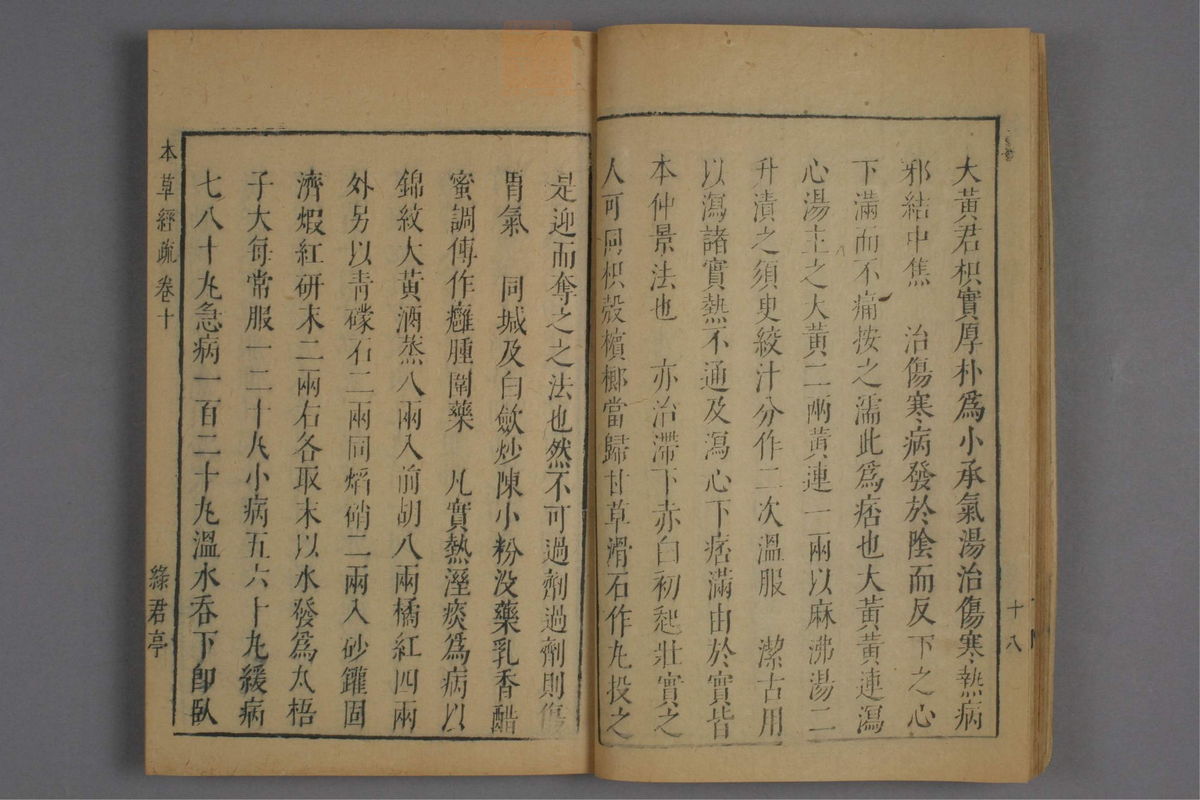 大黃君枳實厚朴爲小承氣湯治傷寒熱病
邪結中焦　治傷寒病發於陰而反下之心
下滿而不痛按之濡此爲痞也大黃黃連瀉
心湯主之大黃二兩黃連一兩以麻沸湯二
升漬之須叟絞汁分作二次溫服　潔古用
以瀉諸實熱不通及瀉心下痞滿由於實皆
本仲景法也　亦治滯下赤白初起壯實之
人可同枳殼檳榔當歸甘草滑石作丸投之
十八
是迎而奪之之法也然不可過劑過劑則傷
胃氣　同城及白歛炒陳小粉没藥乳香醋
蜜調傅作癰腫圍藥　凡實熱溼痰爲病以
錦紋大黃酒蒸八兩入前胡八兩橘紅四兩
外另以青礞石二兩同熖硝二兩入砂鑵固
濟煅紅研末二兩右各取末以水發爲丸梧
子大每常服一二十丸小病五六十丸緩病
七八十丸急病一百二十丸溫水吞下卽臥
本草經疏卷十
綠君亭